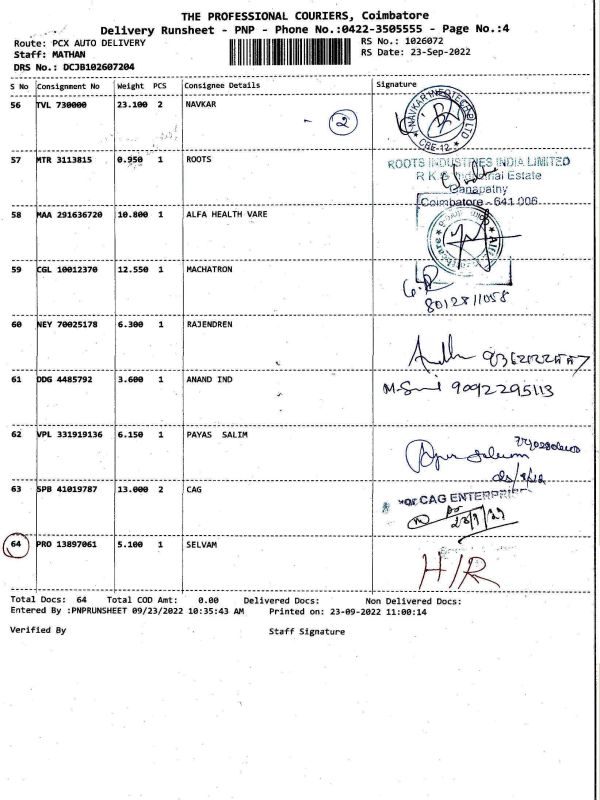 THE PROFESSIONAL COURIERS, Coimbatore
Delivery Runsheet - PNP - Phone No.:0422-3505555 - Page No.:4
Route: PCX AUTO DELIVERY
RS No.: 1026072
Staff: MATHAN
RS Date: 23-Sep-2022
DRS No.: DCJB102607204
S No Consignment No Weight PCS Consignee Details Signature
56 TVL 730000 23.100 2 NAVKAR 2
NAVKAR INFOTECH P LTD
CBE-12
57 MTR 3113815 0.950 1 ROOTS
ROOTS INDUSTRIES INDIA LIMITED
R K G Industrial Estate
Ganapathy
Coimbatore - 641 006
58 MAA 291636720 10.800 1 ALFA HEALTH VARE
59 CGL 10012370 12.550 1 MACHATRON
8012811058
60 NEY 70025178 6.300 1 RAJENDREN
61 DDG 4485792 3.600 1 ANAND IND
9092295113
62 VPL 331919136 6.150 1 PAYAS SALIM
63 SPB 41019787 13.000 2 CAG
CAG ENTERPRI
64 PRO 13897061 5.100 1 SELVAM
H/R
Total Docs: 64 Total COD Amt: 0.00 Delivered Docs: Non Delivered Docs:
Entered By :PNPRUNSHEET 09/23/2022 10:35:43 AM Printed on: 23-09-2022 11:00:14
Verified By Staff Signature